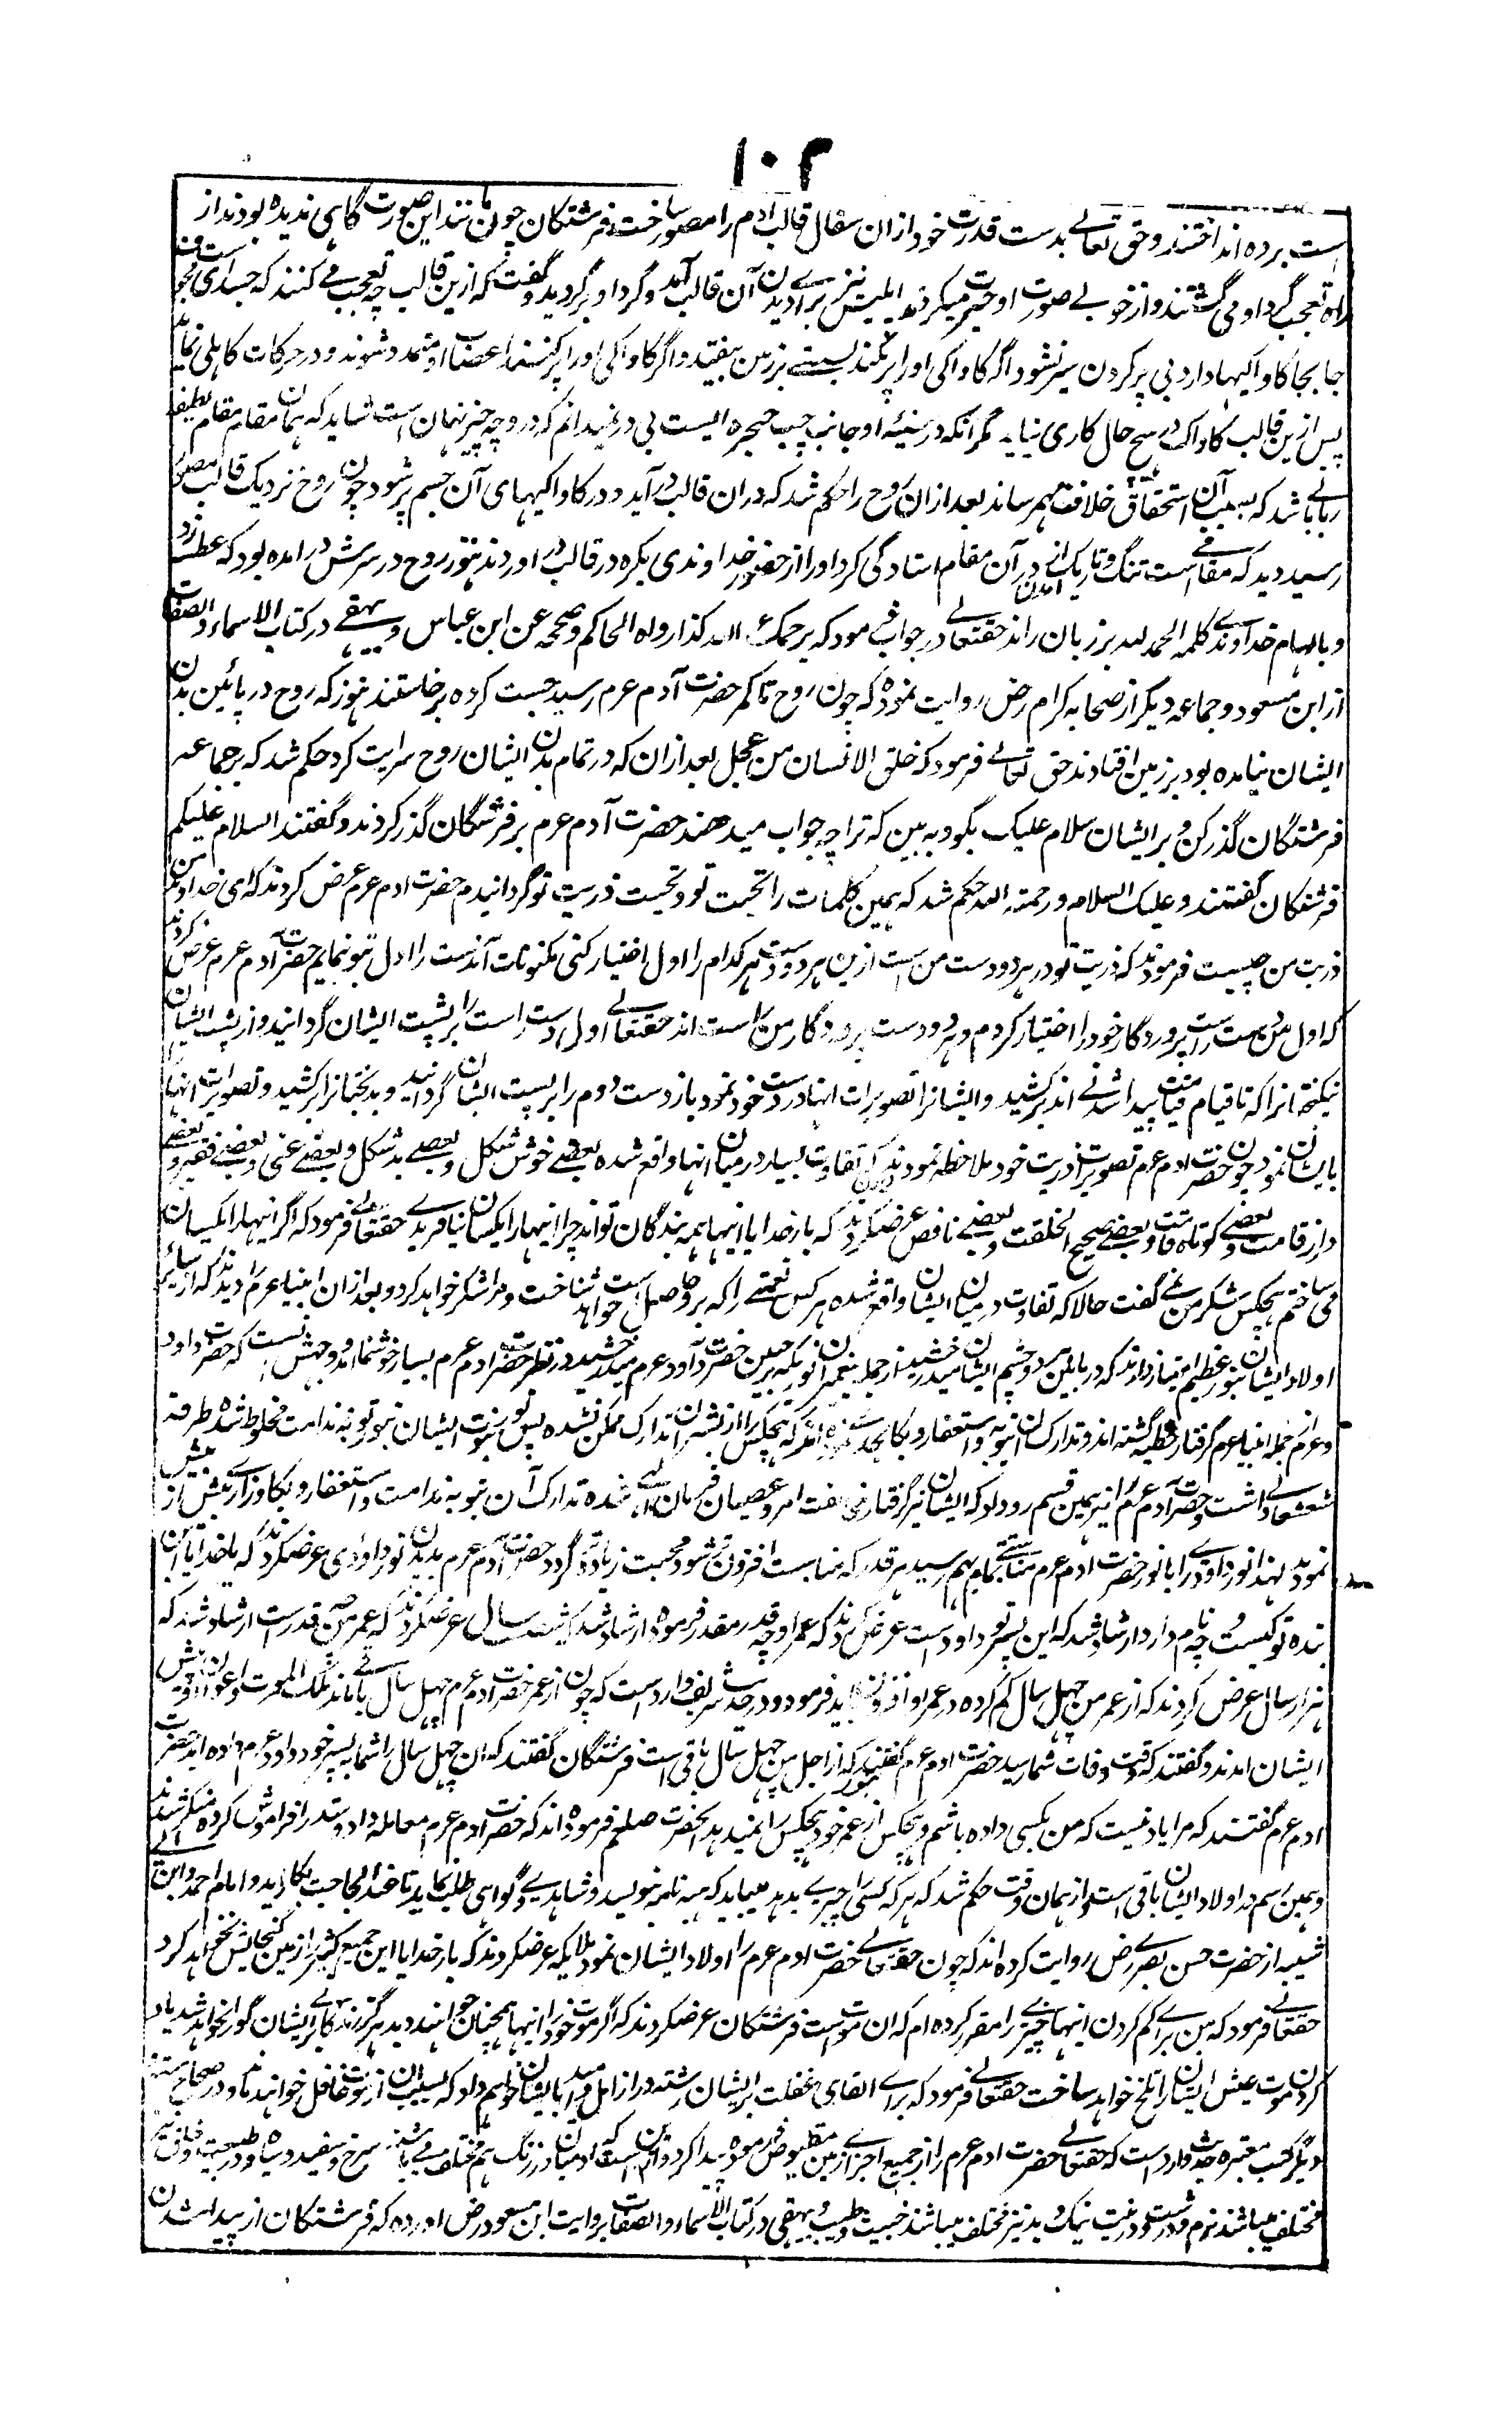 ۱۰۲
است برده انداختند و حق تعالے بدست قدرت خود ازان سفال قالب ادم را مصور ساخت فرشتکان چون مانند این صورت گاہی ندیده بودند از
راه تعجب گرد او می گشتند و از خوبے صورت او حیرت میکردند ابلیس نیز براے دیدن آن قالب آمد و گرد او برگردید و گفت که ازین قالب چه تعجب مے کنند که جسدای مجوف است
جابجا کاواکیها دارد بی پر کردن سیر نشود اگر کاواکی اورا پر نکنند بسستے بر زمین بیفتد و اگر کاواکی اورا پر کنند اعضای او متمدد شوند و در حرکات کاہلی نماید
پس ازین قالب کاواک در ہیچ حال کاری نیاید مگر آنکه در سینۀ او جانب چپ حجره ایست بی در نمیدانم که در و چه چیز نہان است شاید که ہمان مقام مقام لطیفه
ربانے باشد که بسبب آن استحقاق خلافت بہم رساند بعد ازان روح را حکم شد که دران قالب در آید و در کاواکیہای آن جسم پر شود چون روح نزدیک قالب مصور
رسید دید که مقامے است تنگ و تاریک از در آمدن آن مقام استادگی کرد اورا از حضور خداوندی بکره در قالب در اوردند ہنوز روح در سرش در امده بود که عطسه زد
و بالہام خداوندے کلمه الحمد لله بر زبان راند حقتعالے در جواب فرمود که یرحمک الله کذا رواه الحاکم و صححه عن ابن عباس و بیہقے در کتاب الاسماء و الصفات
از ابن مسعود و جماعه دیگر از صحابه کرام رض روایت نموده که چون روح تا کمر حضرت آدم عرم رسید جست کرده برخاستند ہنوز که روح در پائین بدن
ایشان نیامده بود بر زمین افتادند حق تعالے فرمود که خلق الانسان من عجل بعد ازان که در تمام بدن ایشان روح سرایت کرد حکم شد که بر جماعه
فرشتگان گذر کن و بر ایشان سلام علیک بگو و به بین که ترا چه جواب میدهند حضرت آدم عرم بر فرشتگان گذر کردند و گفتند السلام علیکم
فرشتکان گفتند و علیک السلام و رحمته الله حکم شد که ہمین کلمات را تحیت تو و تحیت ذریت تو گردانیدم حضرت ادم عرم عرض کردند که ای خداوند من
ذریت من چیست فرمودند که ذریت تو در ہر دو دست من است ازین ہر دو دست ہر کدام را اول اختیار کنی مکنونات آندست را اول بتو نمایم حضرت آدم عرم عرض کردند
که اول من دست راست پروردگار خود را اختیار کردم و ہر دو دست پروردگار من راست اند حقتعالے اول دست راست را بر پشت ایشان گردانید و از پشت ایشان
نیکبختانرا که تا قیام قیامت پیدا شدنے اند برکشید و ایشانرا تصویرات انہا در دست خود نمود باز دست دوم را بر پشت ایشان گردانید و بدبختانرا برکشید و تصویرات انہا
بایشان نمود چون حضرت ادم عرم تصویرات ذریت خود ملاحظه نمودند دیدند که تفاوت بسیار درمیان انہا واقع شده بعضے خوش شکل و بعضے بد شکل و بعضے غنی و بعضے فقیر و بعضے
دراز قامت و بعضے کوتاه قامت و بعضے صحیح الخلقت و بعضے ناقص عرض کردند که بار خدایا اینہا ہمه بندگان تو اند چرا اینہارا یکسان نیافریدے حقتعالے فرمود که اگر اینہارا یکسان
می ساختم ہیچکس شکر من نمے گفت حالا که تفاوت درمیان ایشان واقع شده ہر کس نعمتے را که برو حاصل است خواہد شناخت و مرا شکر خواہد کرد و بعد ازان انبیا عرم را دیدند که از سائر
اولاد ایشان بنور عظیم امتیاز دارند که در مابین ہر دو چشم ایشان میدرخشید از جمله پیغمبران نوریکه بر جبین حضرت داود عرم میدرخشید در نظر حضرت ادم عرم بسیار خوشنما امد و وجہش است که حضرت داود
عرم از جمله انبیا عرم گرفتار خطیه گشته اند و تدارک آن بتوبه و استغفار و بکا بحدے نموده اند که ہیچکس را از بشر ان تدارک ممکن نشده پس نور نبوت ایشان بنور توبه ندامت مخلوط شده طرفه
شعشعانے داشت و حضرت آدم عرم را نیز ہمین قسم رو داد بود که ایشان نیز گرفتار مخالفت امر و عصیان فرمان الٰہے شده تدارک آن بتوبه ندامت و استغفار و بکا و زاری بیش از بیش
نمودند لہذا نور داودے را با نور حضرت ادم عرم مناسبتے تمام بہم رسید ہر قدر که مناسبت افزون شود محبت زیاده گردد حضرت آدم عرم بدیدن نور داؤدی عرض کردند که باخدایا این
بنده تو کیست و چه نام دارد ارشاد شد که این پسر تو داود است عرض کردند که عمر او چه قدر مقدر فرموده ارشاد شد که شصت سال عرض کردند که عمر من چه قدر است ارشاد شد که
ہزار سال عرض کردند که از عمر من چہل سال کم کرده در عمر او افزونے باید فرمود و در حدیث شریف وارد است که چون از عمر حضرت ادم عرم چہل سال باقے ماند ملک الموت و اعوان او پیش
ایشان امدند و گفتند که وقت وفات شما رسید حضرت ادم عرم گفتند که ہنوز از اجل من چہل سال باقی است فرشتگان گفتند که ان چہل سال را شما به پسر خود داود عرم داده اید حضرت
ادم عرم گفتند که مرا یاد نیست که من بکسی داده باشم و ہیچکس از عمر خود ہیچکس را نمیدہد آنحضرت صلعم فرموده اند که حضرت ادم عرم معامله داد و ستد را فراموش کرده منکر شدند
و ہمین رسم در اولاد ایشان باقی است و از ہمان وقت حکم شد که ہر که کسی را چیزے بدہد میباید که ہبه نامه بنویسد و شاہدے و گواہی طلب نماید تا عند الحاجت بکار آید و امام احمد و ابن ابی
شیبه از حضرت حسن بصرے رض روایت کرده اند که چون حقتعالے حضرت ادم عرم را اولاد ایشان نمود ملایکه عرض کردند که بار خدایا این جمیع کثیر را زمین گنجایش نخواہد کرد
حقتعالے فرمود که من براے کم کردن اینہا چیزے را مقرر کرده ام که ان موت است فرشتگان عرض کردند که اگر موت خود را اینہا ہمچنان خواہند دید ہرگز زندگانے بر ایشان گوارا نخواہد شد یاد
کردن موت عیش ایشان را تلخ خواہد ساخت حقتعالے فرمود که براے القای غفلت بر ایشان رشته دراز امل و امید را بایشان خواہم داد که بسبب ان از موت غافل خواہند ماند و در صحاح سته
و دیگر کتب معتبره حدیث وارد است که حقتعالے حضرت ادم عرم را از جمیع اجزاے زمین مقبوض فرموده پیدا کرد و ازین است که ادمیان در رنگ ہم مختلف مے باشند سرخ و سفید و سیاه و در طبیعت و خلق نیز
مختلف میباشند نرم و درشت و در نیت نیک و بد نیز مختلف میباشند خبیث و طیب و بیہقی در کتاب الاسماء و الصفات بروایت ابن مسعود رض اورده که فرشتکان از پیدا شدن